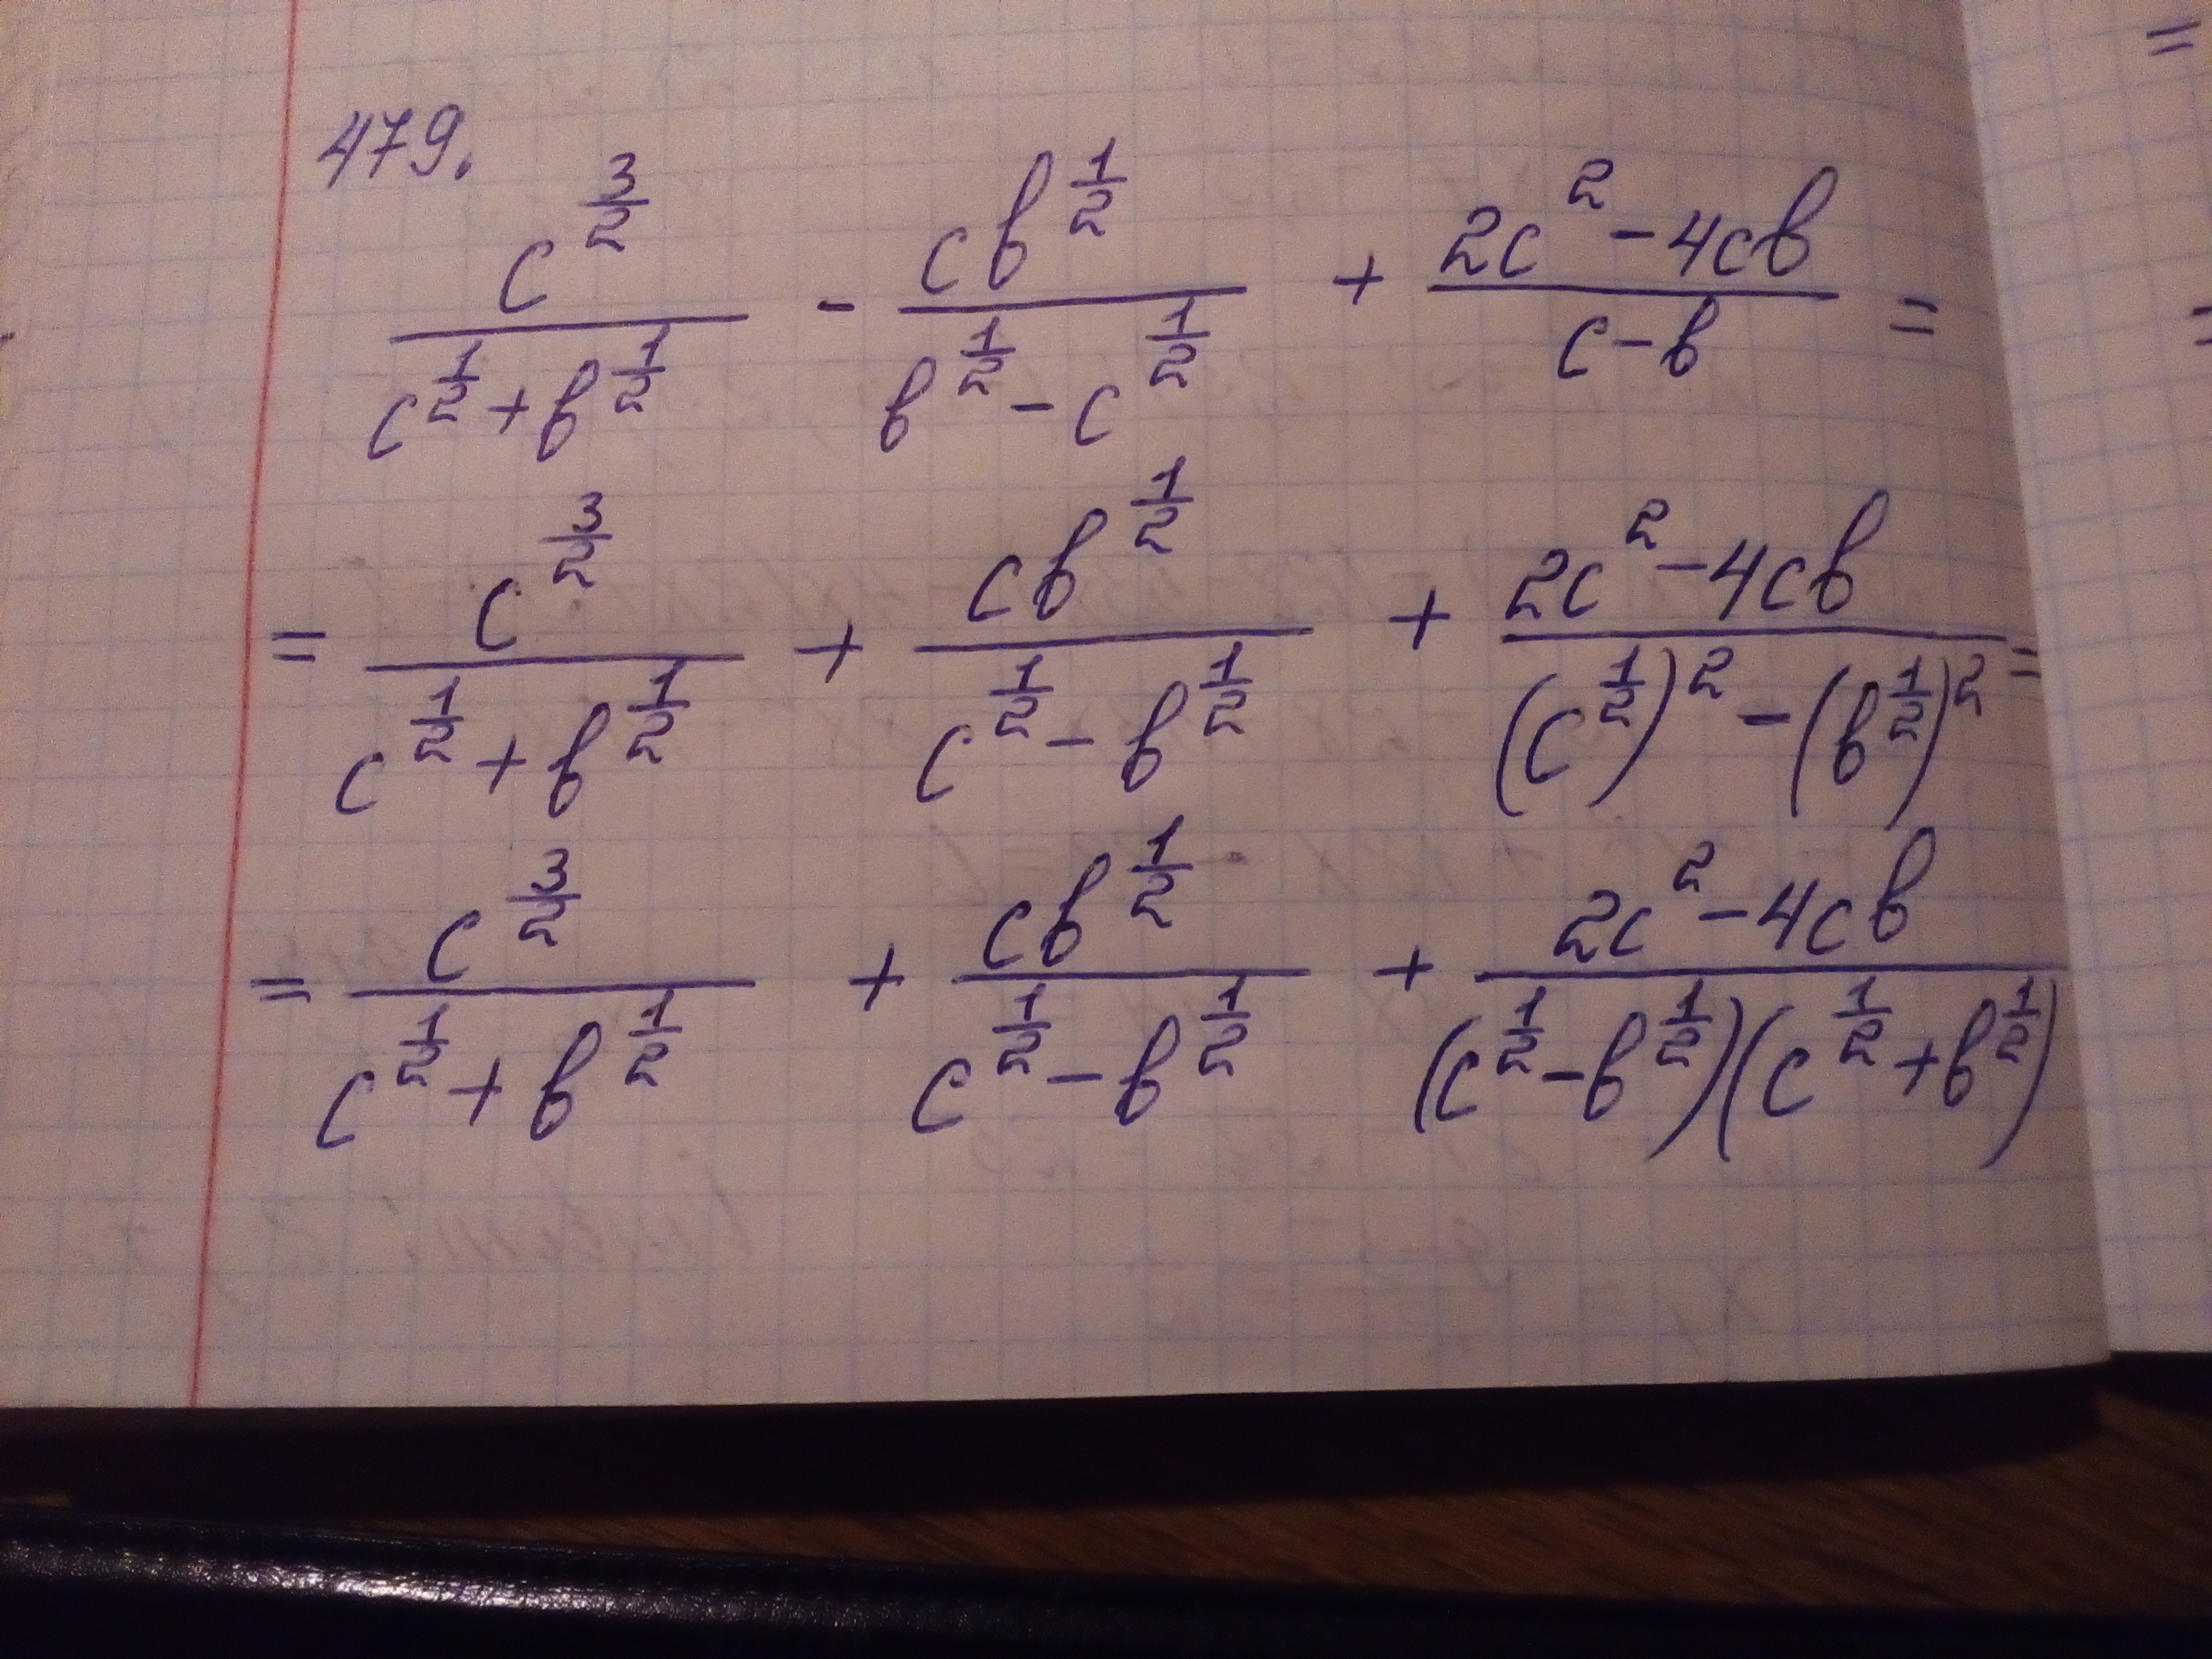 479.
\frac{c^{\frac{3}{2}}}{c^{\frac{1}{2}}+b^{\frac{1}{2}}} - \frac{cb^{\frac{1}{2}}}{b^{\frac{1}{2}}-c^{\frac{1}{2}}} + \frac{2c^2-4cb}{c-b} =
= \frac{c^{\frac{3}{2}}}{c^{\frac{1}{2}}+b^{\frac{1}{2}}} + \frac{cb^{\frac{1}{2}}}{c^{\frac{1}{2}}-b^{\frac{1}{2}}} + \frac{2c^2-4cb}{(c^{\frac{1}{2}})^2-(b^{\frac{1}{2}})^2} =
= \frac{c^{\frac{3}{2}}}{c^{\frac{1}{2}}+b^{\frac{1}{2}}} + \frac{cb^{\frac{1}{2}}}{c^{\frac{1}{2}}-b^{\frac{1}{2}}} + \frac{2c^2-4cb}{(c^{\frac{1}{2}}-b^{\frac{1}{2}})(c^{\frac{1}{2}}+b^{\frac{1}{2}})}
=
=